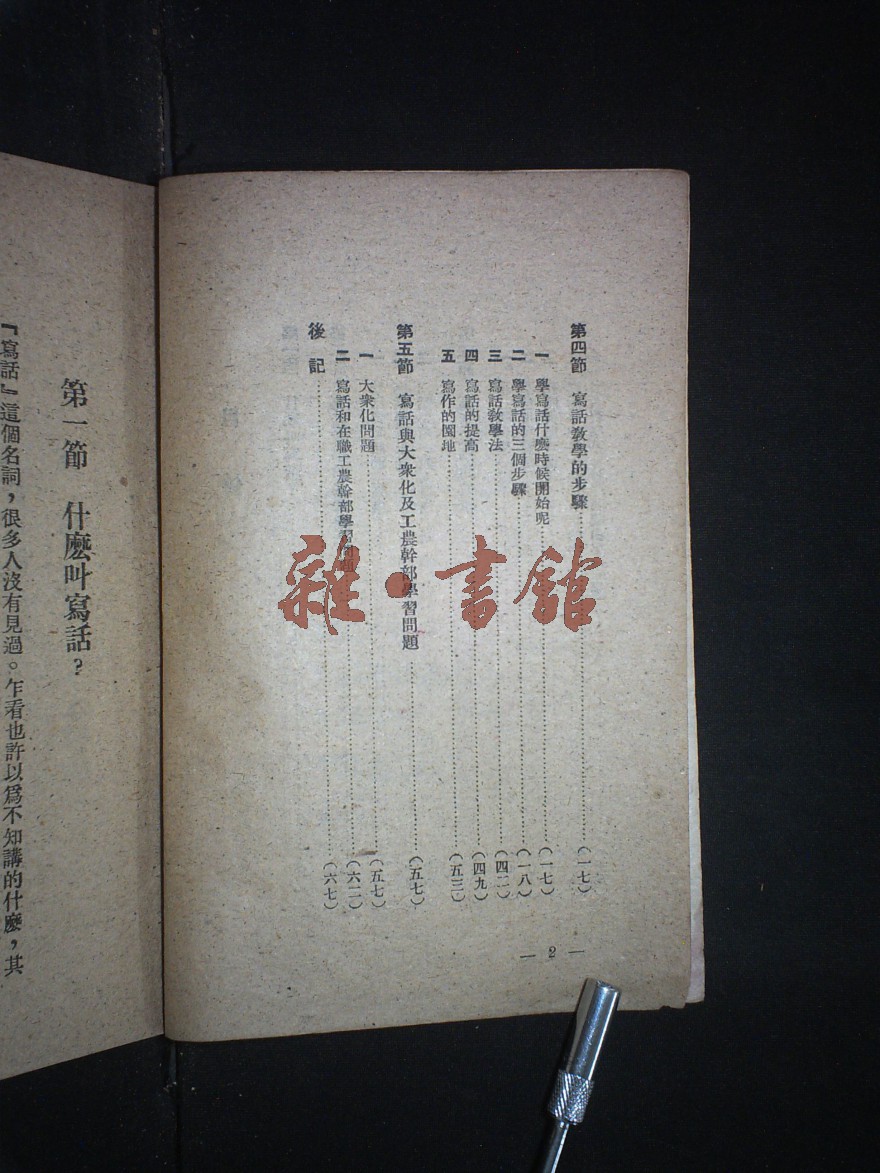 第四節 寫話教學的步驟……(一七)
一 學寫話什麽時候開始呢……(一七)
二 學寫話的三個步驟……(一八)
三 寫話教學法……(四二)
四 寫話的提高……(四九)
五 寫作的園地……(五三)
第五節 寫話與大衆化及工農幹部學習問題……(五七)
一 大衆化問題……(五七)
二 寫話和在職工農幹部學習問題……(六二)
後記……(六七)
— 2 —
第一節 什麽叫寫話?
『寫話』這個名詞,很多人沒有見過。乍看也許以爲不知講的什麽,其
雜·書館